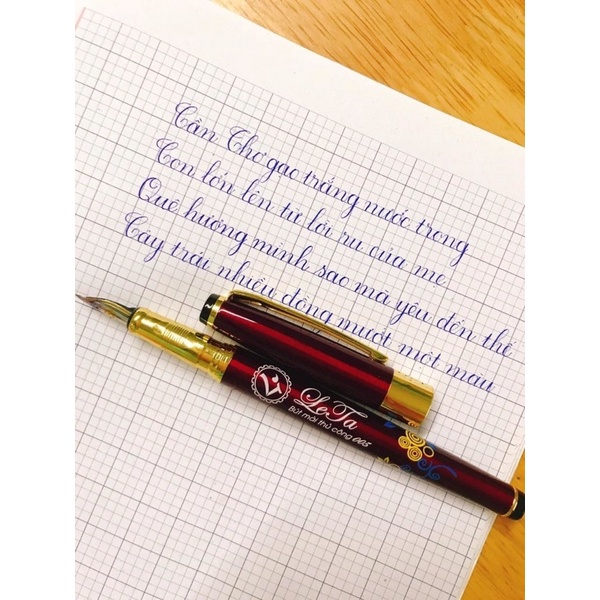 Cần Thơ gạo trắng nước trong
Con lớn lên từ lời ru của mẹ
Quê hương mình sao mà yêu đến thế
Cây trái nhiều đồng mướt một màu
LeTa
Bút mài thủ công 005